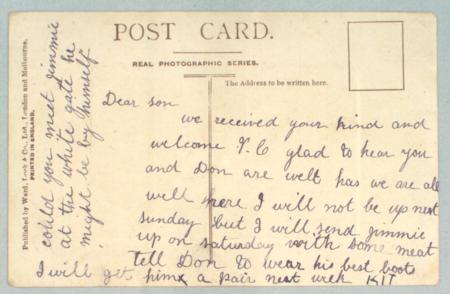 POST CARD.
REAL PHOTOGRAPHIC SERIES.
The Address to be written here.
Published by Ward, Lock & Co., Ltd., London and Melbourne.
PRINTED IN ENGLAND.
Dear son
we received your kind and
welcome P.C glad to hear you
and Don are well has we are all
well here I will not be up next
sunday but I will send jimmie
up on saturday with some meat
tell Don to wear his best boots
I will get him a pair next week
could you meet jimmie
at the white gate he
might be by himself